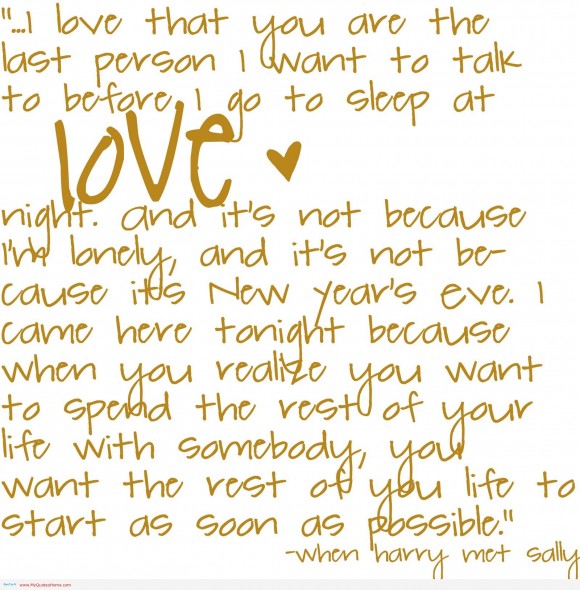 "...I love that you are the
last person I want to talk
to before I go to sleep at
love
night. and it's not because
I'm lonely, and it's not be-
cause it's New Year's Eve. I
came here tonight because
when you realize you want
to spend the rest of your
life with somebody, you
want the rest of you life to
start as soon as possible."
-when harry met sally
www.MyQuotesHome.com